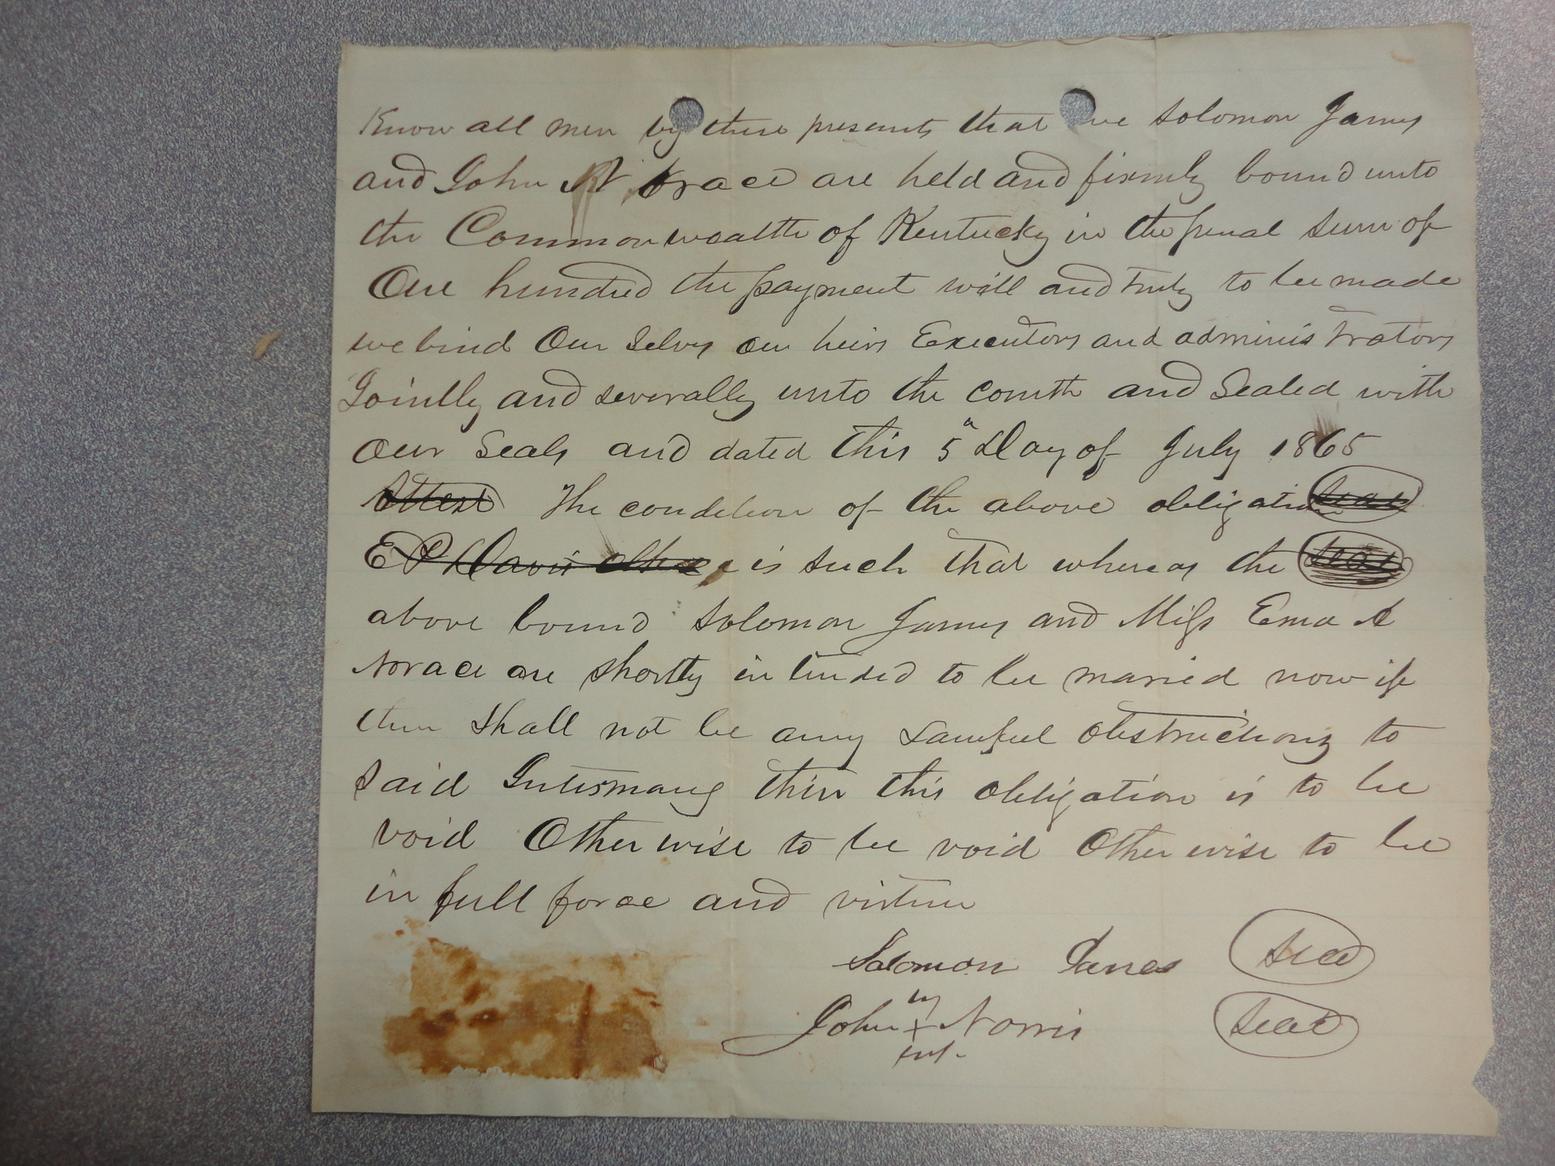 Know all men by these presents that we Solomon James
and John N Norace are held and firmly bound unto
the Commonwealth of Kentucky in the penal sum of
One hundred the payment will and truly to be made
we bind Our Selvs our heirs Executors and administrators
Jointly and severally unto the comth and Sealed with
our Seals and dated this 5" Day of July 1865
Attest The condition of the above obligation Seal
E P Davis is such that whereas the Seal
above bound Solomon James and Miss Ema A
Norace are shortly intended to be maried now if
there Shall not be any Lawful obstructions to
said Intermarig then this obligation is to be
void Otherwise to be void Otherwise to be
in full force and virtue
Solomon Janes Seal
John X Norris Seal